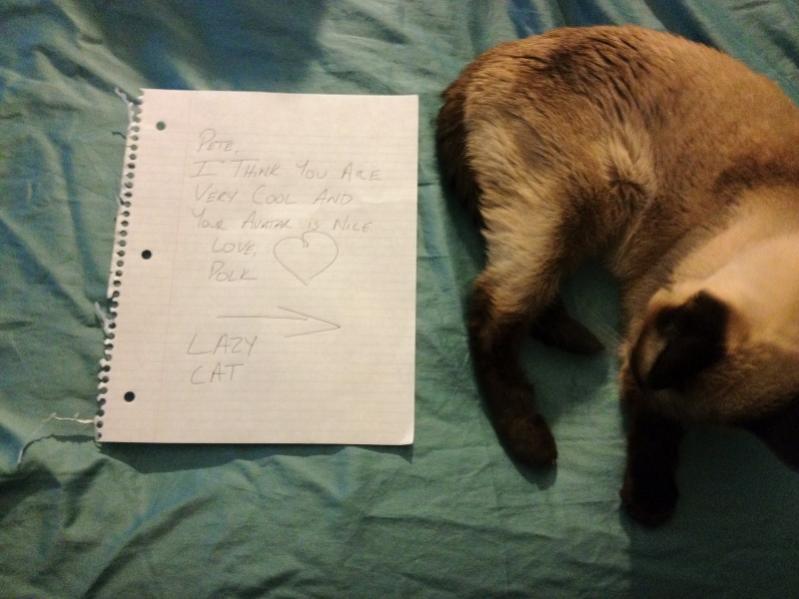 PETE,
I THINK YOU ARE
VERY COOL AND
YOUR AVATAR IS NICE
LOVE,
POLK
LAZY
CAT